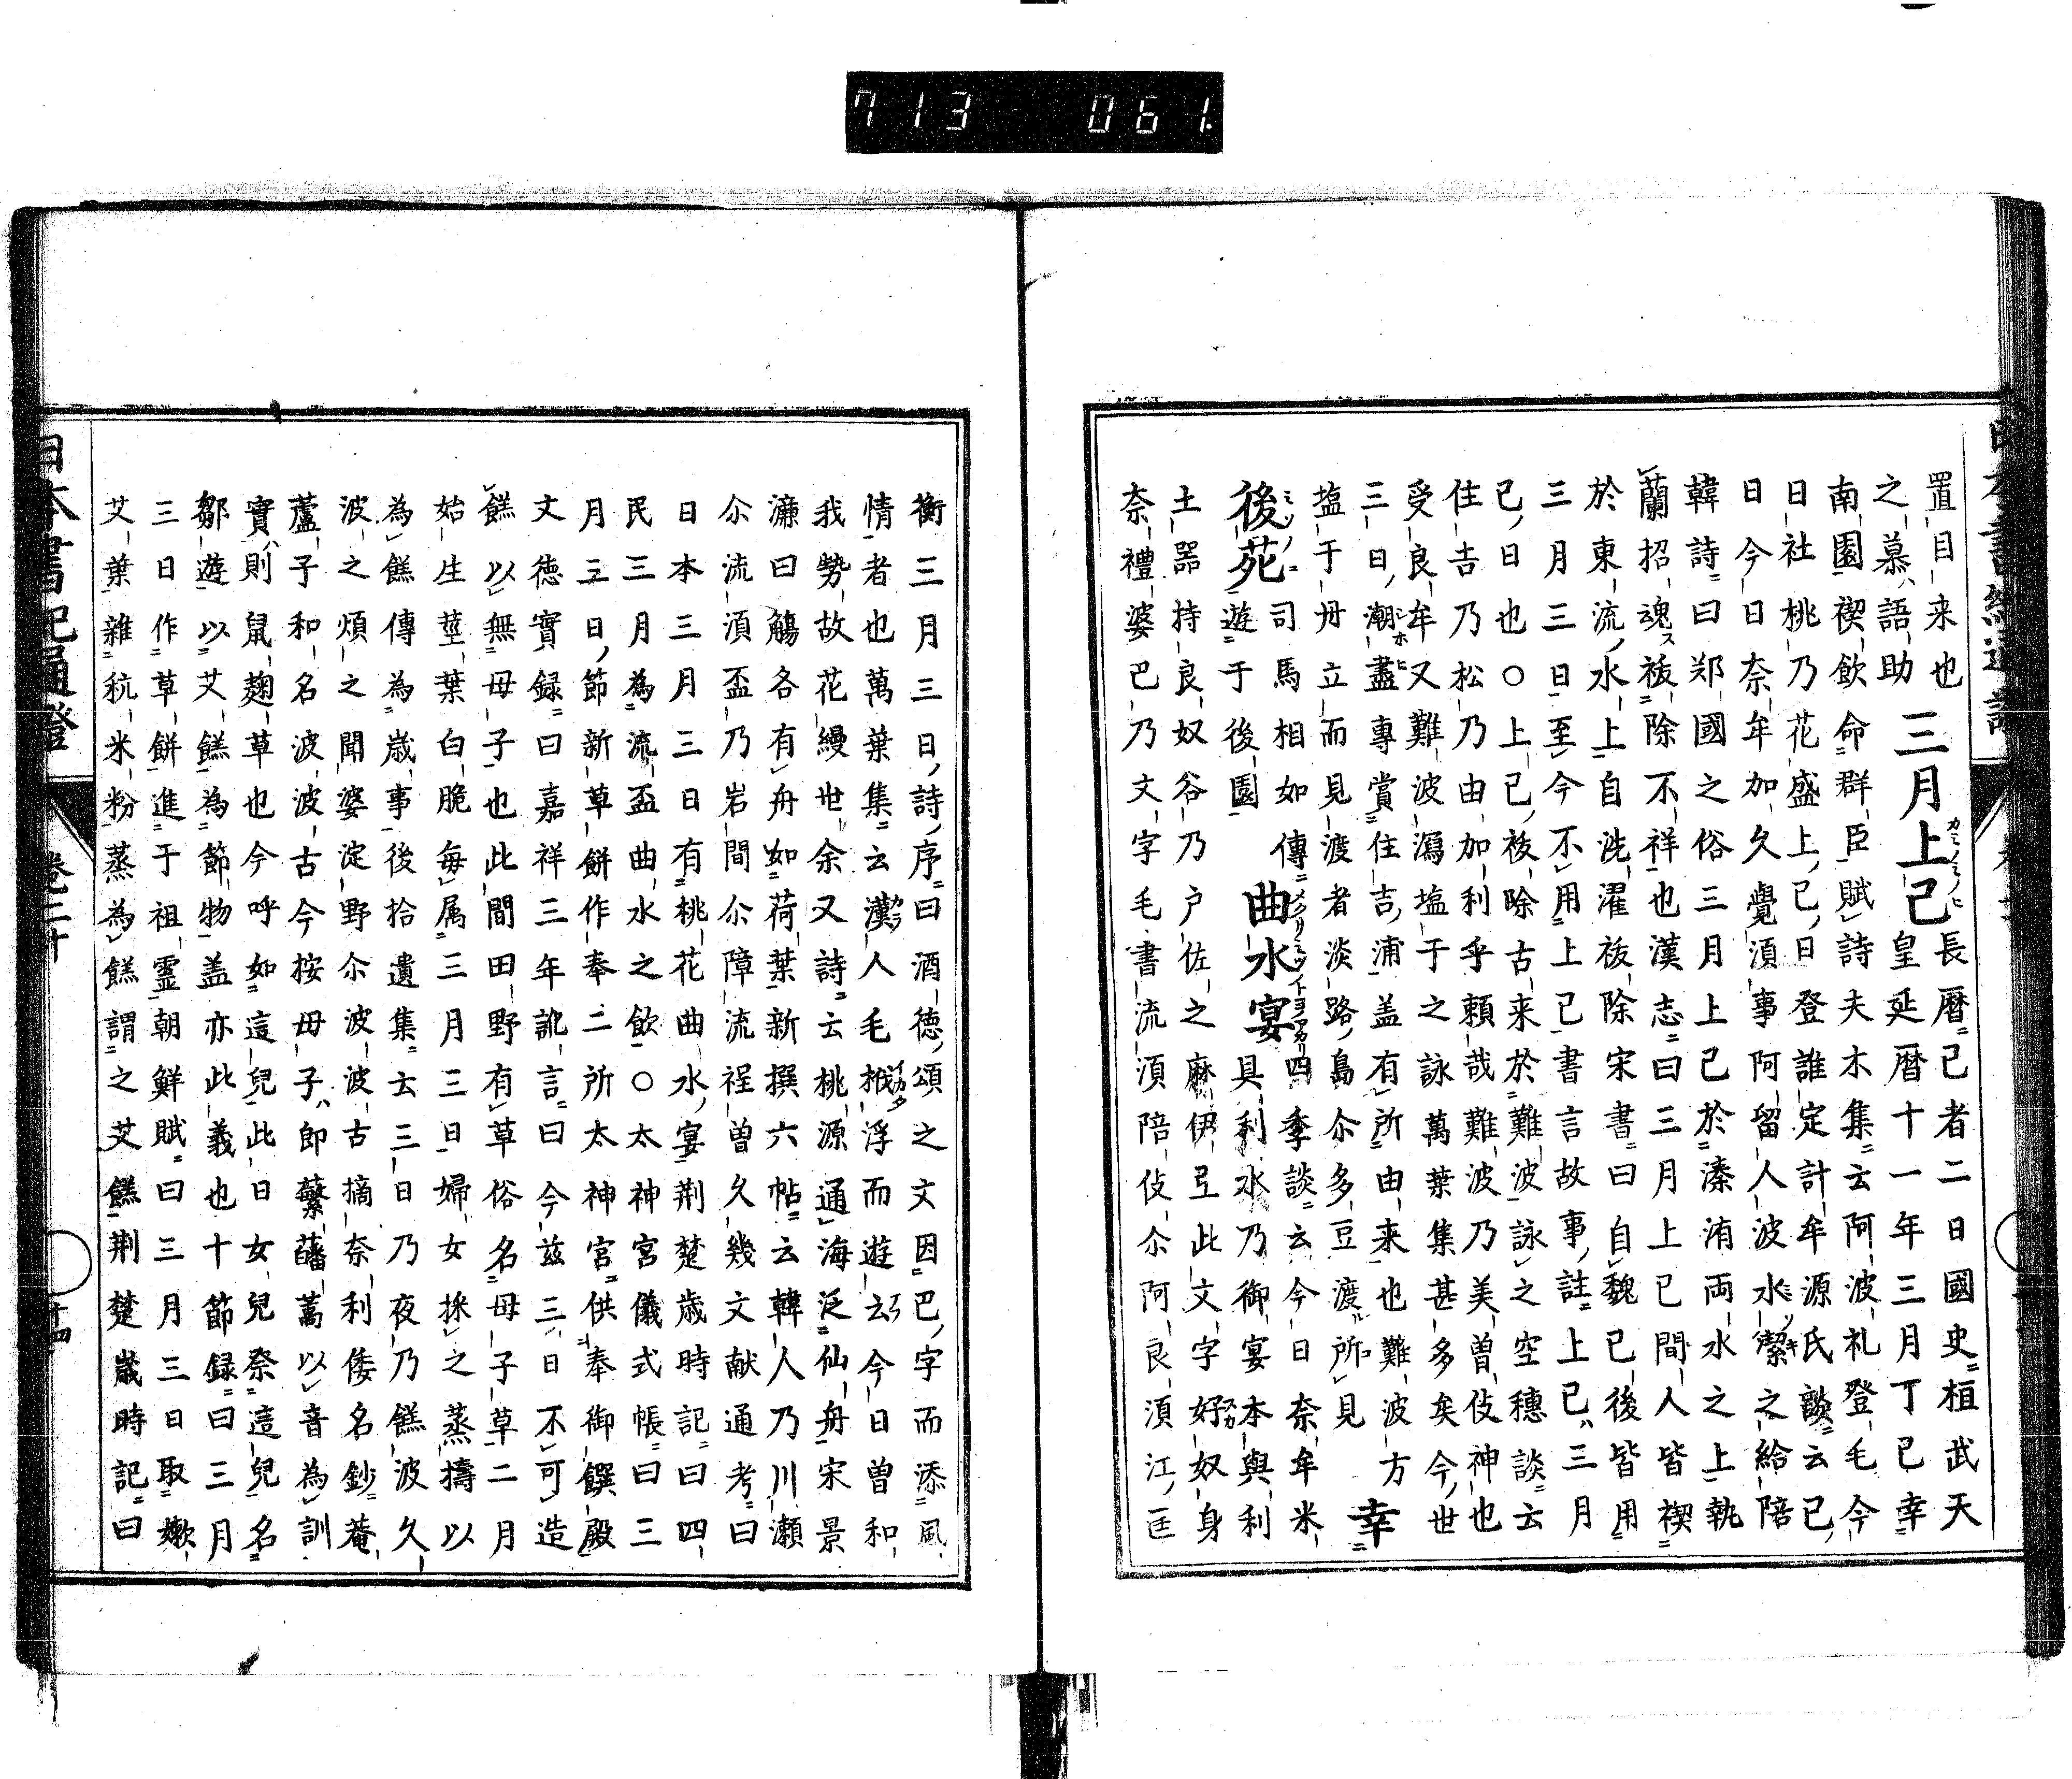 713 061.
置目来也
之慕語助 三月上巳 長暦己者二日國史桓武天
皇延暦十一年三月丁巳幸
南園禊飲命群臣賦詩夫木集云阿波礼登毛今
日社桃乃花盛上巳日登誰定計牟源氏談云巳
日今日奈牟加久覺湏事阿留人波水潔之給陪
韓詩曰郑國之俗三月上巳於溱洧両水之上執
蘭招魂祓除不祥也漢志曰三月上巳間人皆禊
於東流水上自洗濯祓除宋書曰自魏已後皆用
三月三日至今不用上巳書言故事註上巳三月
巳日也○上巳祓除古来於難波詠之空穗談云
住吉乃松乃由加利乎頼哉難波乃美曽伎神也
受良牟又難波瀉塩于之詠萬葉集甚多矣今世
三日潮盡專賞住吉浦盖有所由来也難波方
塩于舟立而見渡者淡路島尒多豆渡所見 幸
後苑 司馬相如傳 曲水宴 四季談云今日奈牟米
遊于後園 具利水乃御宴本與利
土器持良奴谷乃户佐之麻伊弖此文字好奴身
奈禮婆巴乃文字毛書流湏陪伎尒阿良湏江匡
衡三月三日詩序曰酒徳頌之文因巴字而添風
情者也萬葉集云漢人毛栰浮而遊云今日曽和
我勢故花縵世余又詩云桃源通海泛仙舟宋景
濂曰觴各有舟如荷葉新撰六帖云韓人乃川瀬
尒流湏盃乃岩間尒障流程曽久幾文献通考曰
日本三月三日有桃花曲水宴荆楚歳時記曰四
民三月為流盃曲水之飲○太神宮儀式帳曰三
月三日節新草餅作奉二所太神宮供奉御饌殿
文徳實録曰嘉祥三年訛言曰今兹三日不可造
餻以無母子也此間田野有草俗名母子草二月
始生莖葉白脆毎属三月三日婦女採之蒸擣以
為餻傳為歳事後拾遺集云三日乃夜乃餻波久
波之煩之聞婆淀野尒波波古摘奈利倭名鈔菴
蘆子和名波波古今按母子即蘩蘠蒿以音為訓
實則鼠麹草也今呼如這兒此日女兒祭這兒名
鄒遊以艾餻為節物盖亦此義也十節録曰三月
三日作草餅進于祖霊朝鮮賦曰三月三日取嫩
艾葉雜秔米粉蒸為餻謂之艾餻荆楚歳時記曰
日本書紀通證
卷三十
十四